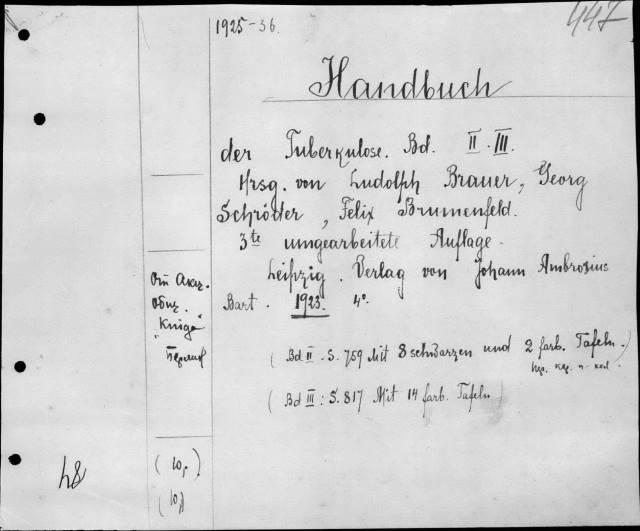 1925-36.
447
Handbuch
der Tuberkulose. Bd. II. III.
Hrsg. von Ludolph Brauer, Georg
Schröder, Felix Brumenfeld.
3te umgearbeitete Auflage.
Leipzig. Verlag von Johann Ambrosius
Bart. 1923. 4°.
От Акц.
Общ.
"Книга"
Берлин
(Bd II. S. 759 Mit 8 schwarzen und 2 farb. Tafeln.)
(Bd III: S. 817 Mit 14 farb. Tafeln)